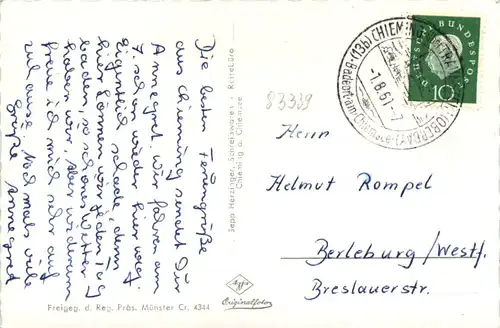 Die besten Feriengrüße
aus Chieming sendet Dir
Annegret. Wir fahren am
7. schon wieder hier weg.
Eigentlich schade, denn
hier können wir jeden Tag
baden, so schönes Wetter
haben wir. Aber wiederum
freue ich mich sehr auf
zuhause. Nochmals viele
Grüße Annegret
Sepp Herzinger, Schreibwaren - Reisebüro
Chieming a. Chiemsee
Agfa
Originalfoto
Freigeg. d. Reg. Präs. Münster Cr. 4344
(13b) CHIEMING
(OBERBAY)
Badeort am Chiemsee
-1.8.61-7
DEUTSCHE BUNDESPOST
10
83339
Herrn
Helmut Rompel
Berleburg/Westf.
Breslauerstr.